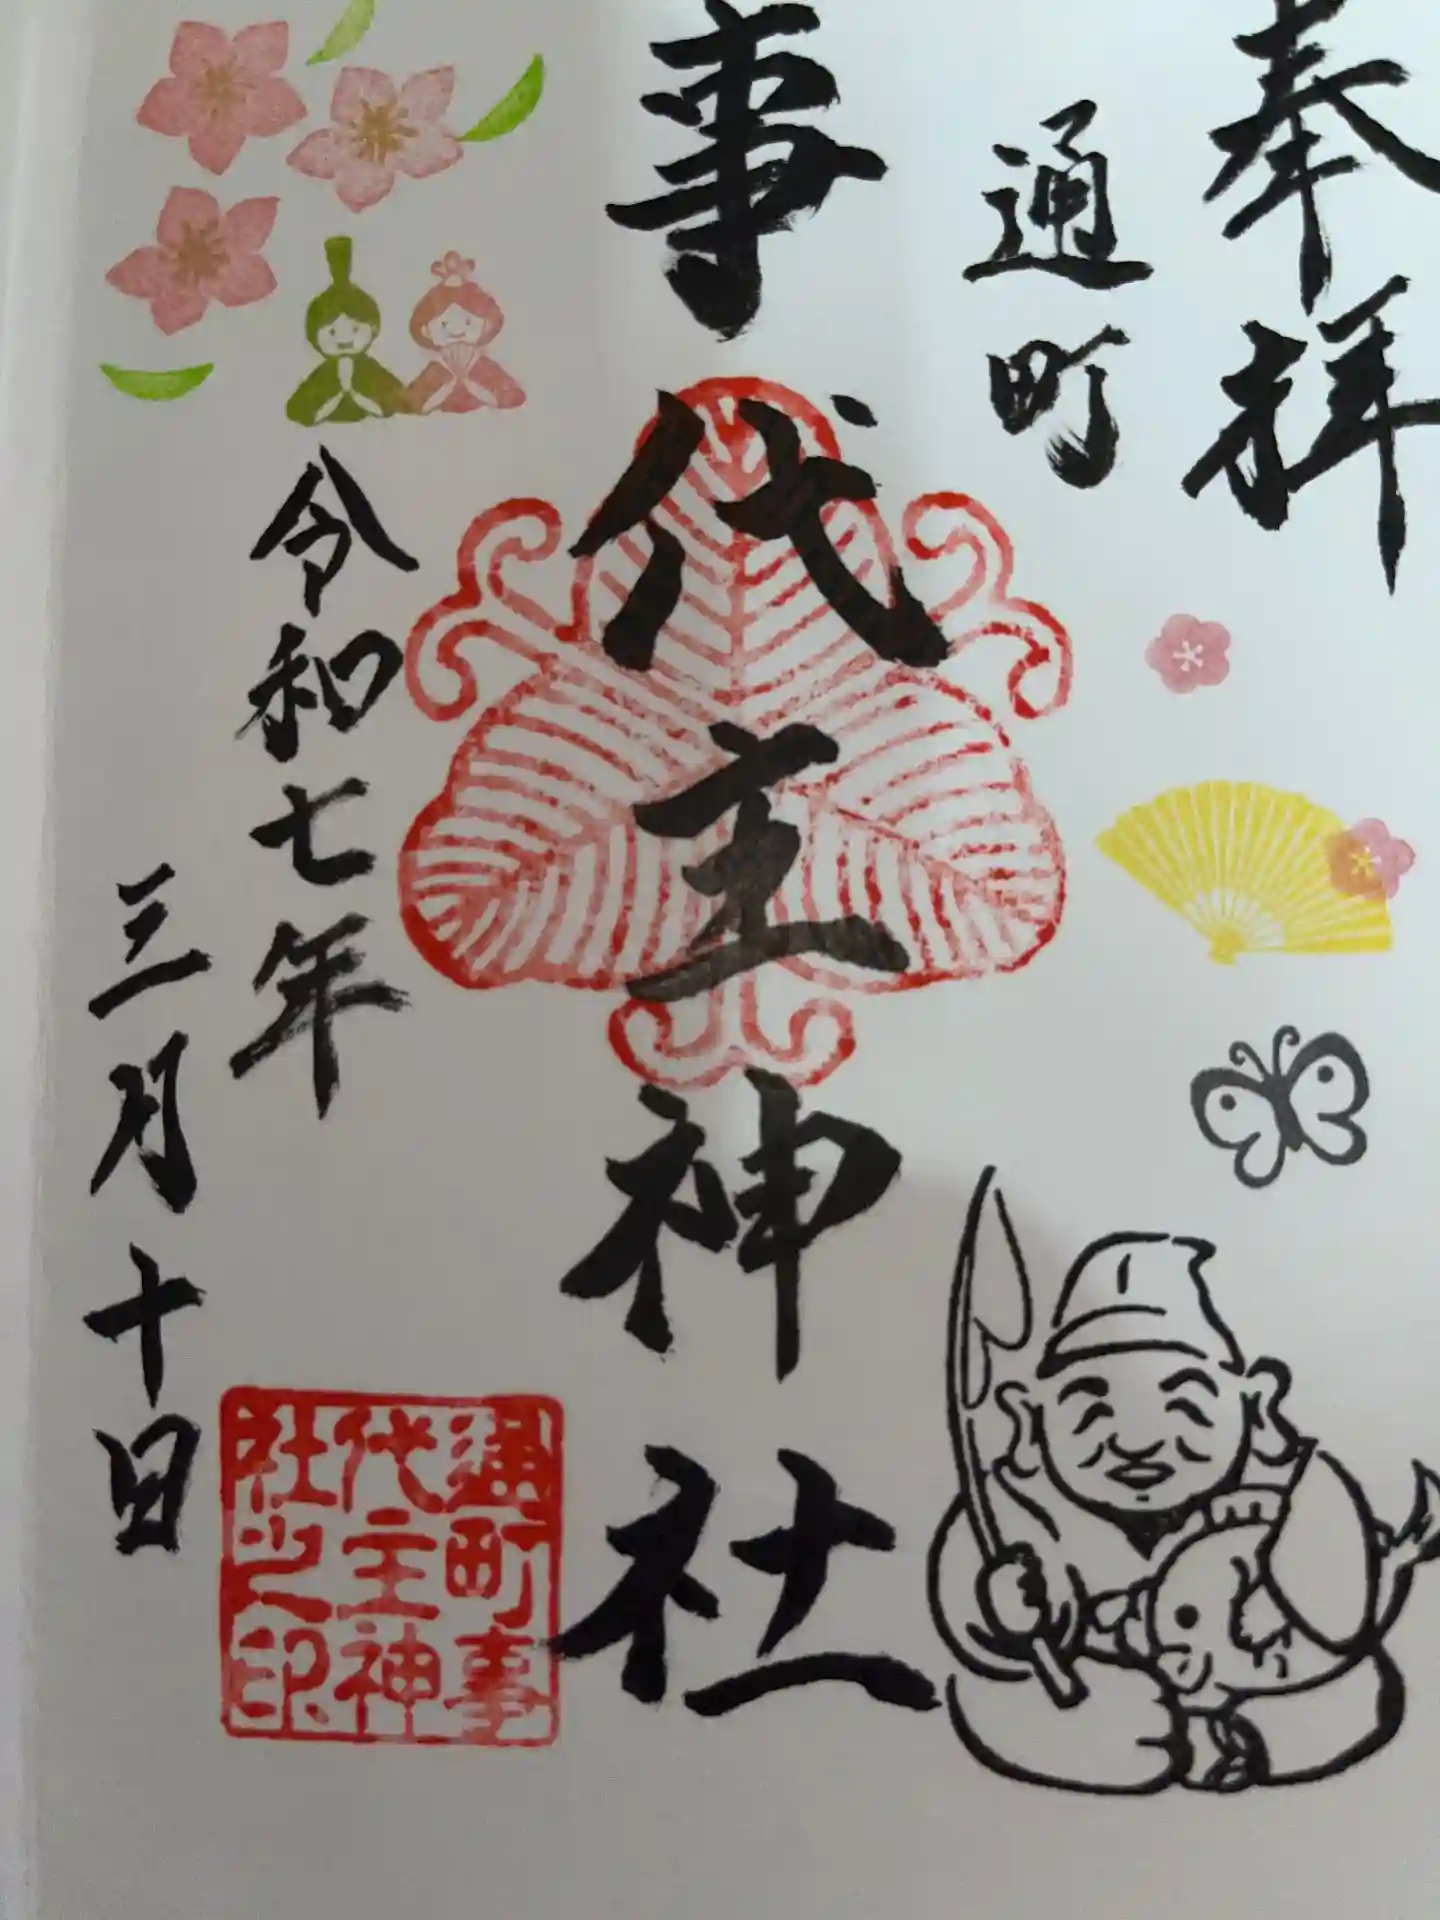 奉拝
通町
事代主神社
令和七年
三月十日
通町事
代主神
社之印